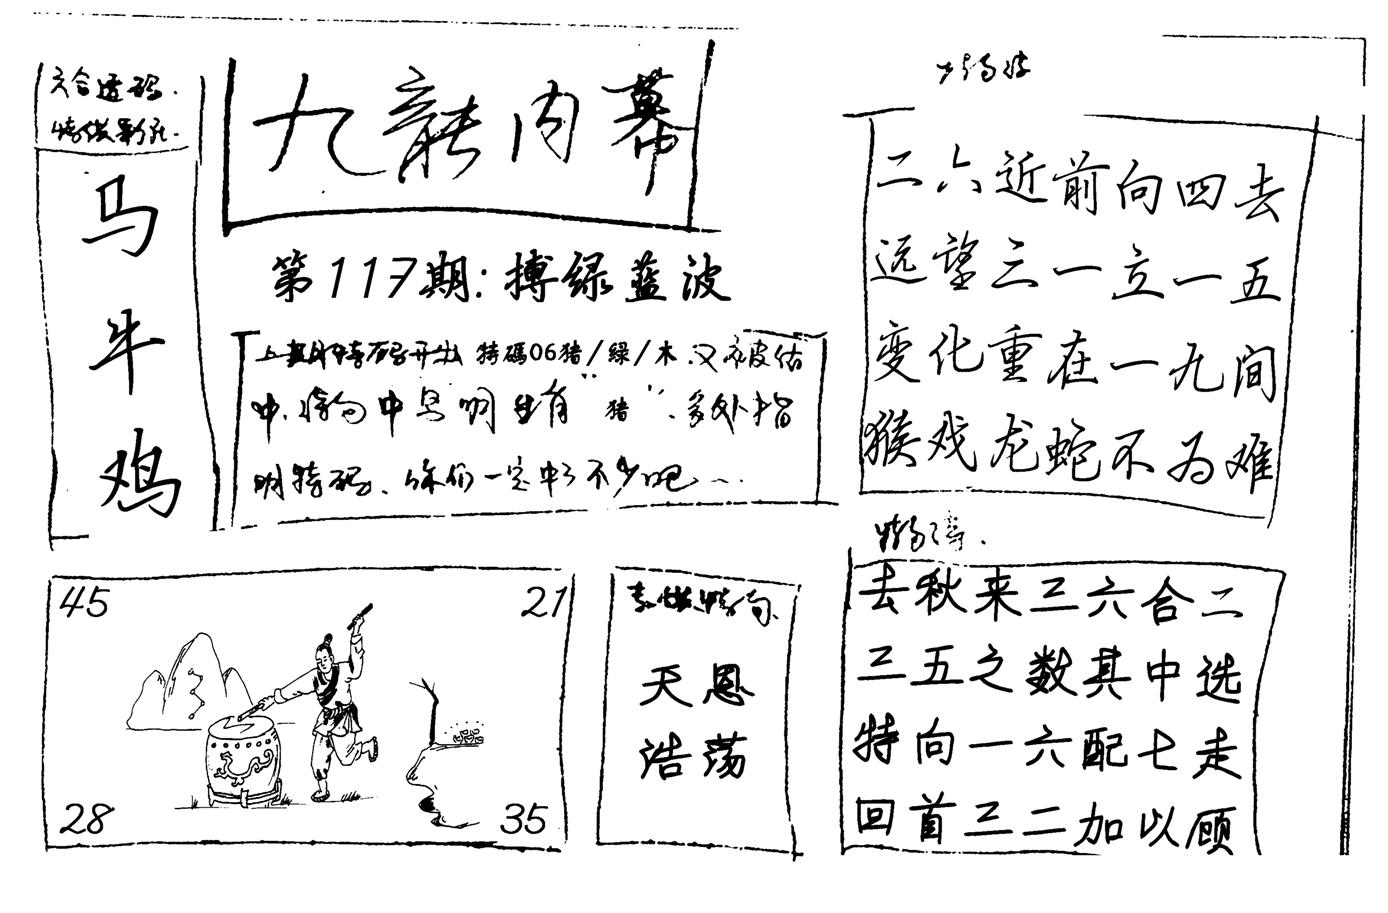 六合透码.
马
牛
鸡
九龍内幕
第117期:搏绿蓝波
上 特码开出 特碼06猪/綠/木.又被估
中.特句中写明生肖"猪".多处指
明特码.你们一定中了不少吧...
45
21
28
35
特句
天恩
浩荡
二六近前向四去
远望三一立一五
变化重在一九间
猴戏龙蛇不为难
去秋来三六合二
三五之数其中选
特向一六配七走
回首三二加以顾